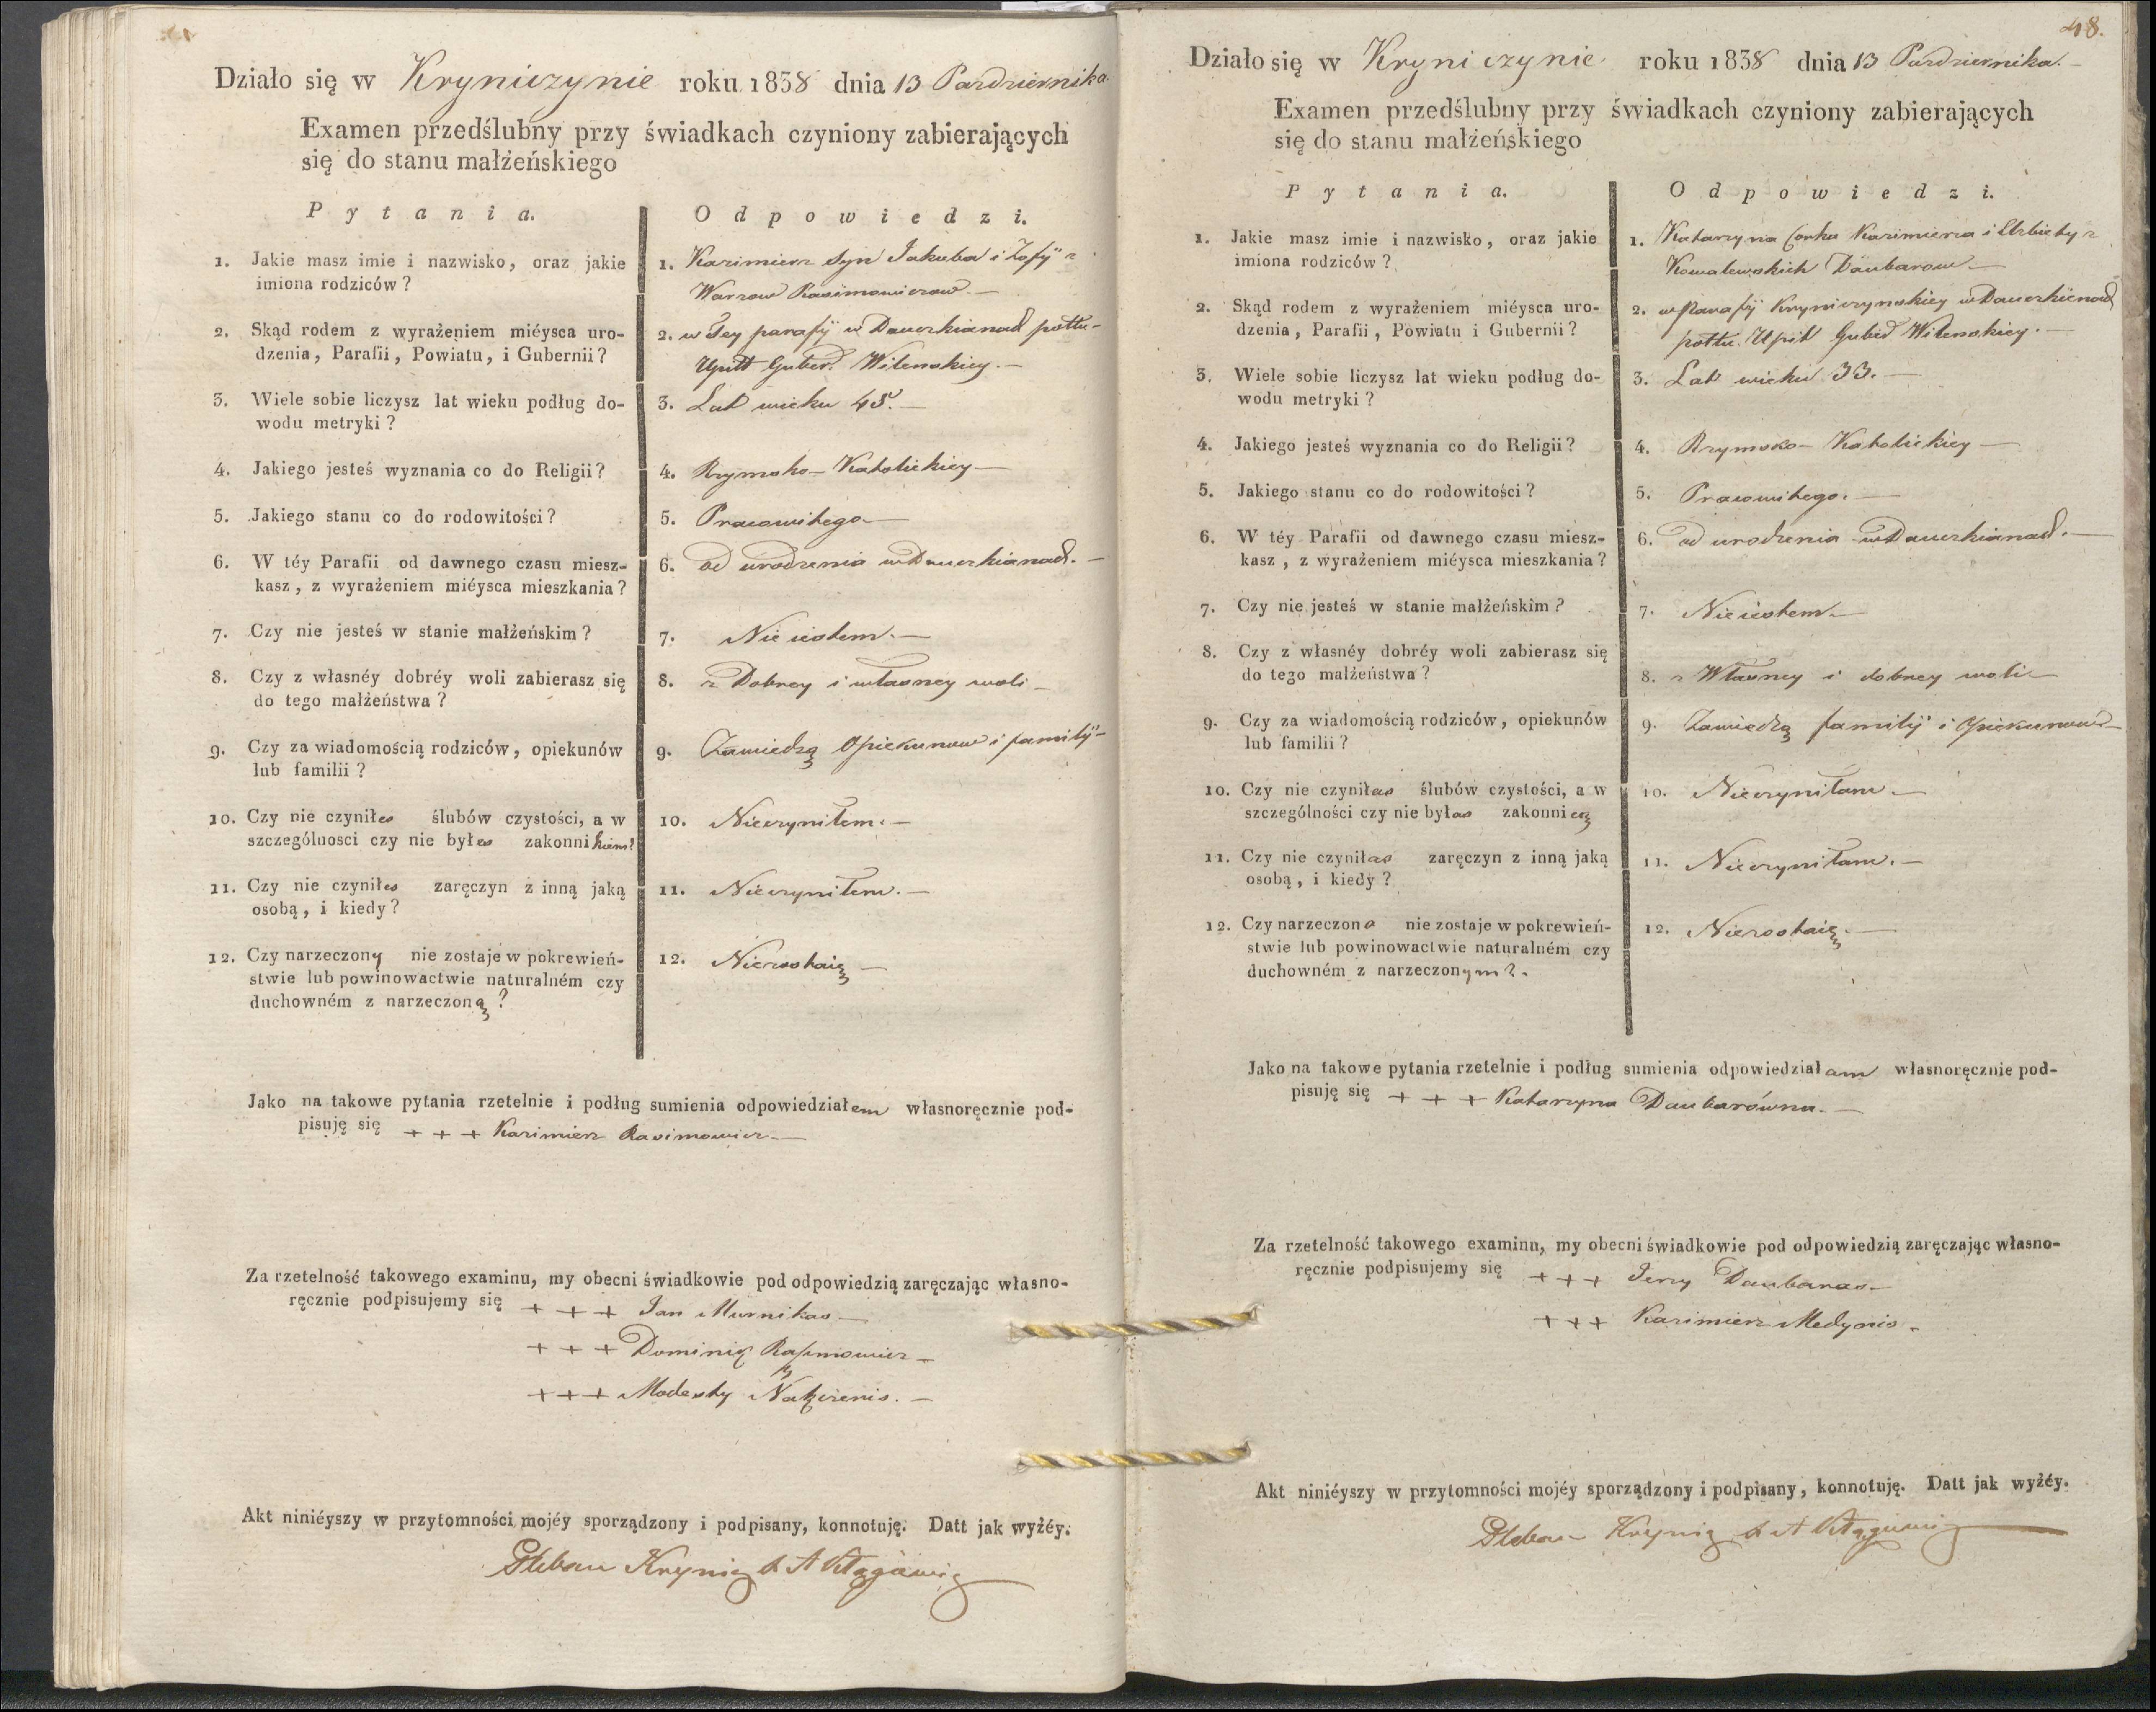 Działo się w Kryniczynie roku 1838 dnia 13 Pazdziernika.
Examen przedślubny przy świadkach czyniony zabierających
się do stanu małżeńskiego
Pytania.
Odpowiedzi.
1. Jakie masz imie i nazwisko, oraz jakie
imiona rodziców?
1. Kazimierz Syn Jakuba i Zofij z
Warzow Rasimowiczow.—
2. Skąd rodem z wyrażeniem miéysca uro-
dzenia, Parafii, Powiatu, i Gubernii?
2. w tey parafij w Dauczkianach pottu-
Upitt Guber. Wilenskiey.—
3. Wiele sobie liczysz lat wieku podług do-
wodu metryki?
3. Lat wieku 45.—
4. Jakiego jesteś wyznania co do Religii?
4. Rzymsko-Katolickiey—
5. Jakiego stanu co do rodowitości?
5. Pracowitego—
6. W téy Parafii od dawnego czasu miesz-
kasz, z wyrażeniem miéysca mieszkania?
6. od urodzenia w Dauczkianach.—
7. Czy nie jesteś w stanie małżeńskim?
7. Nie iestem.—
8. Czy z własnéy dobréy woli zabierasz się
do tego małżeństwa?
8. z Dobrey i własney woli—
9. Czy za wiadomością rodziców, opiekunów
lub familii?
9. Zawiedzą Opiekunow i familij—
10. Czy nie czyniłes ślubów czystości, a w
szczególnosci czy nie byłes zakonnikiem?
10. Nieczyniłem.—
11. Czy nie czyniłes zaręczyn z inną jaką
osobą, i kiedy?
11. Nieczyniłem.—
12. Czy narzeczony nie zostaje w pokrewień-
stwie lub powinowactwie naturalném czy
duchowném z narzeczoną?
12. Niezostaię—
Jako na takowe pytania rzetelnie i podług sumienia odpowiedziałem własnoręcznie pod-
pisuję się +++ Kazimierz Rasimowicz.—
Za rzetelność takowego examinu, my obecni świadkowie pod odpowiedzią zaręczając własno-
ręcznie podpisujemy się +++ Jan Murnikas—
+++ Dominik Rasimowicz—
+++ Modesty
Akt niniéyszy w przytomności mojéy sporządzony i podpisany, konnotuję. Datt jak wyżéy.
Pleban Krynicz
48.
Działo się w Kryniczynie roku 1838 dnia 13 Pazdziernika.—
Examen przedślubny przy świadkach czyniony zabierających
się do stanu małżeńskiego
Pytania.
Odpowiedzi.
1. Jakie masz imie i nazwisko, oraz jakie
imiona rodziców?
1. Katarzyna Corka Kazimierza i Elzbiety z
Kowalewskich Daubarow—
2. Skąd rodem z wyrażeniem miéysca uro-
dzenia, Parafii, Powiatu i Gubernii?
2. w Parafij Kryniczynskiey w Dauczkianach
pottu. Upit Guber Wilenskiey.—
3. Wiele sobie liczysz lat wieku podług do-
wodu metryki?
3. Lat wieku 33.—
4. Jakiego jesteś wyznania co do Religii?
4. Rzymsko-Katolickiey—
5. Jakiego stanu co do rodowitości?
5. Pracowitego.—
6. W téy Parafii od dawnego czasu miesz-
kasz, z wyrażeniem miéysca mieszkania?
6. od urodzenia w Dauczkianach.—
7. Czy nie jesteś w stanie małżeńskim?
7. Nie iestem—
8. Czy z własnéy dobréy woli zabierasz się
do tego małżeństwa?
8. z Własney i dobrey woli—
9. Czy za wiadomością rodziców, opiekunów
lub familii?
9. Zawiedzą familij i Opiekunow—
10. Czy nie czyniłas ślubów czystości, a w
szczególności czy nie byłas zakonnicą
10. Nieczyniłam—
11. Czy nie czyniłas zaręczyn z inną jaką
osobą, i kiedy?
11. Nieczyniłam.—
12. Czy narzeczona nie zostaje w pokrewień-
stwie lub powinowactwie naturalném czy
duchowném z narzeczonym?.
12. Niezostaię.—
Jako na takowe pytania rzetelnie i podług sumienia odpowiedziałam własnoręcznie pod-
pisuję się +++ Katarzyna Daubarówna.—
Za rzetelność takowego examinu, my obecni świadkowie pod odpowiedzią zaręczając własno-
ręcznie podpisujemy się +++ Jerzy Daubaras—
+++ Kazimierz Medynis.
Akt niniéyszy w przytomności mojéy sporządzony i podpisany, konnotuję. Datt jak wyżéy.
Pleban Krynicz